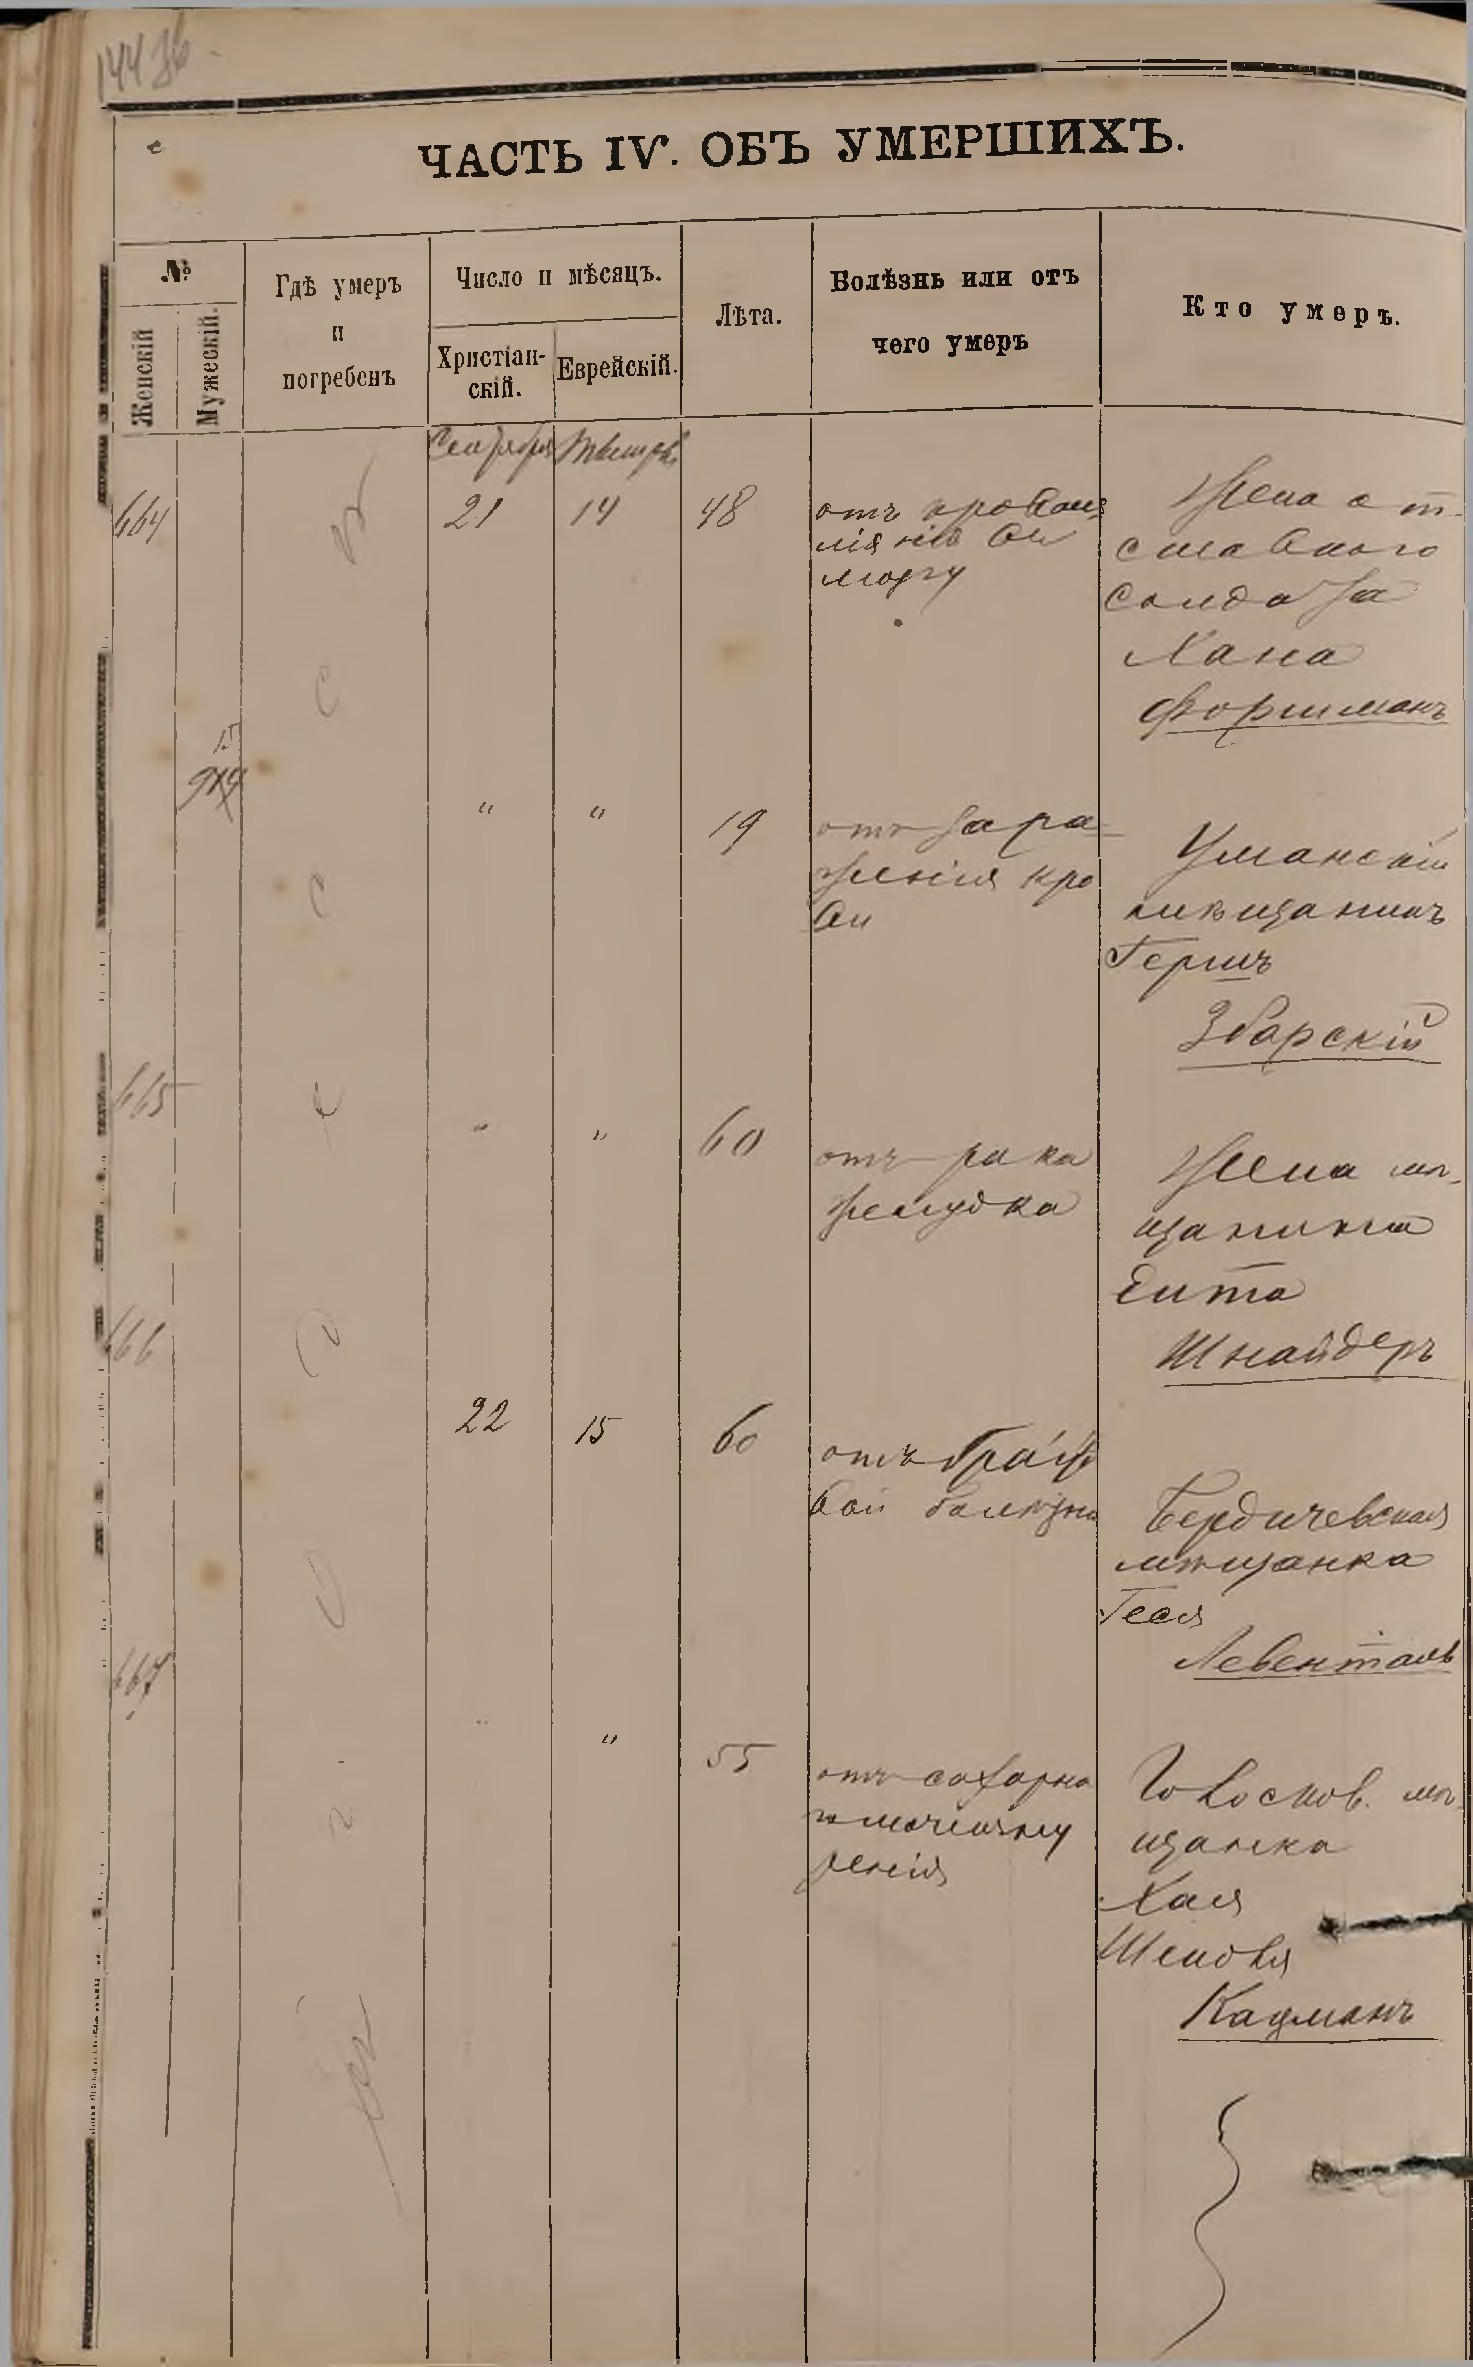 144 зв
ЧАСТЬ IV. ОБЪ УМЕРШИХЪ.
№
Женскій
Мужескій.
Гдѣ умеръ
и
погребенъ
Число и мѣсяцъ.
Христіан-
скій.
Еврейскій.
Лѣта.
Болѣзнь или отъ
чего умеръ
Кто умеръ.
Сентября Тишри
664 21 14 48 отъ кровоиз
ліянія въ
мозгу
Жена от-
ставного
солдата
Хана
Форшманъ
15
" " 19 отъ зара-
женія кро
ви
Уманскій
мѣщанинъ
Гершъ
Збарскій
665 " " 60 отъ рака
желудка
Жена мѣ-
щанина
Ента
Шнайдеръ
666 22 15 60 отъ
вой болѣзни
Бердичевская
мѣщанка
Геся
Левенталь
667 " " 55 отъ сахарна
го мочеизну
ренія
мѣ-
щанка
Хая
Кацманъ